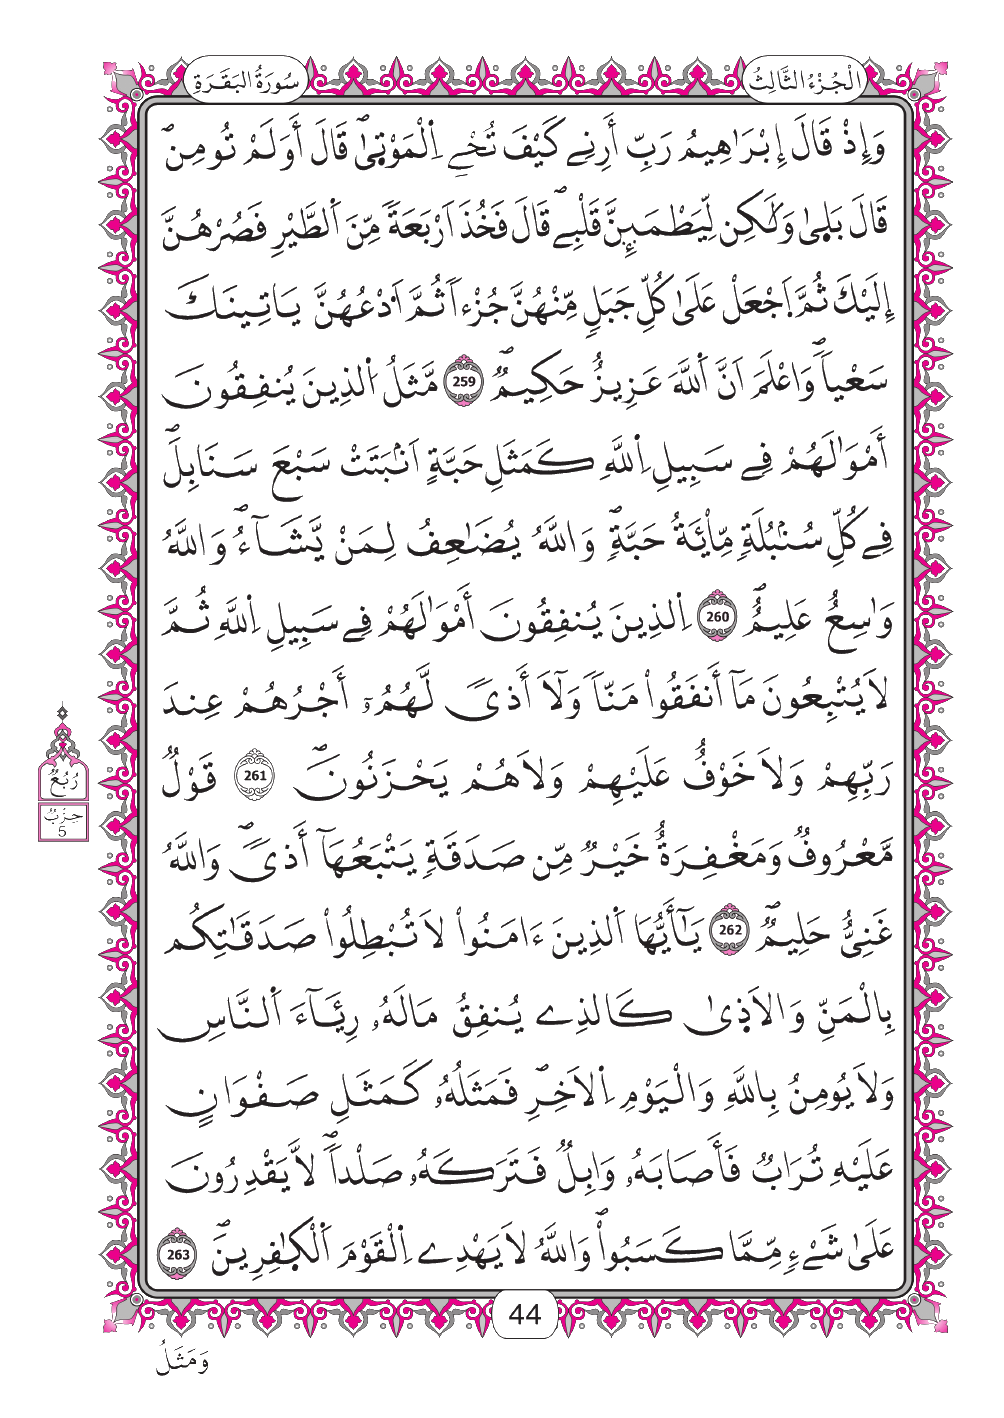 الْجُزْءُ الثَّالِثُ
سُورَةُ البَقَرَةِ
وَإِذْ قَالَ إِبْرَاهِيمُ رَبِّ أَرِنِے كَيْفَ تُحْيِے اِ۬لْمَوْتٰيۖ قَالَ أَوَلَمْ تُومِنۖ
قَالَ بَلٰيۖ وَلَٰكِن لِّيَطْمَئِنَّ قَلْبِےۖ قَالَ فَخُذَ اَرْبَعَةٗ مِّنَ اَ۬لطَّيْرِ فَصُرْهُنَّ
إِلَيْكَ ثُمَّ اَ۪جْعَلْ عَلَيٰ كُلِّ جَبَلٖ مِّنْهُنَّ جُزْءاٗ ثُمَّ اَ۟دْعُهُنَّ يَاتِينَكَ
سَعْياٗۖ وَاعْلَمَ اَنَّ اَ۬للَّهَ عَزِيزٌ حَكِيمٞۖ 259 مَّثَلُ اُ۬لذِينَ يُنفِقُونَ
أَمْوَٰلَهُمْ فِے سَبِيلِ اِ۬للَّهِ كَمَثَلِ حَبَّةٍ اَنۢبَتَتْ سَبْعَ سَنَابِلَۖ
فِے كُلِّ سُنۢبُلَةٖ مِّاْئَةُ حَبَّةٖۖ وَاللَّهُ يُضَٰعِفُ لِمَنْ يَّشَآءُۖ وَاللَّهُ
وَٰسِعٌ عَلِيمٌۖ 260 اِ۬لذِينَ يُنفِقُونَ أَمْوَٰلَهُمْ فِے سَبِيلِ اِ۬للَّهِ ثُمَّ
لَا يُتْبِعُونَ مَآ أَنفَقُواْ مَنّاٗ وَلَآ أَذيٗ لَّهُمُۥٓ أَجْرُهُمْ عِندَ
رَبِّهِمْ وَلَا خَوْفٌ عَلَيْهِمْ وَلَا هُمْ يَحْزَنُونَۖ 261 قَوْلٞ
مَّعْرُوفٞ وَمَغْفِرَةٌ خَيْرٞ مِّن صَدَقَةٖ يَتْبَعُهَآ أَذيٗۖ وَاللَّهُ
غَنِيٌّ حَلِيمٞۖ 262 يَٰٓأَيُّهَا اَ۬لذِينَ ءَامَنُواْ لَا تُبْطِلُواْ صَدَقَٰتِكُم
بِالْمَنِّ وَالَاذٰي كَالذِے يُنفِقُ مَالَهُۥ رِئَآءَ اَ۬لنَّاسِ
وَلَا يُومِنُ بِاللَّهِ وَالْيَوْمِ اِ۬لَاخِرِۖ فَمَثَلُهُۥ كَمَثَلِ صَفْوَانٍ
عَلَيْهِ تُرَابٞ فَأَصَابَهُۥ وَابِلٞ فَتَرَكَهُۥ صَلْداٗۖ لَّا يَقْدِرُونَ
عَلَيٰ شَےْءٖ مِّمَّا كَسَبُواْۖ وَاللَّهُ لَا يَهْدِے اِ۬لْقَوْمَ اَ۬لْكٰفِرِينَۖ 263
رُبُعٌ
حِزْبٌ
5
44
وَمَثَلُ